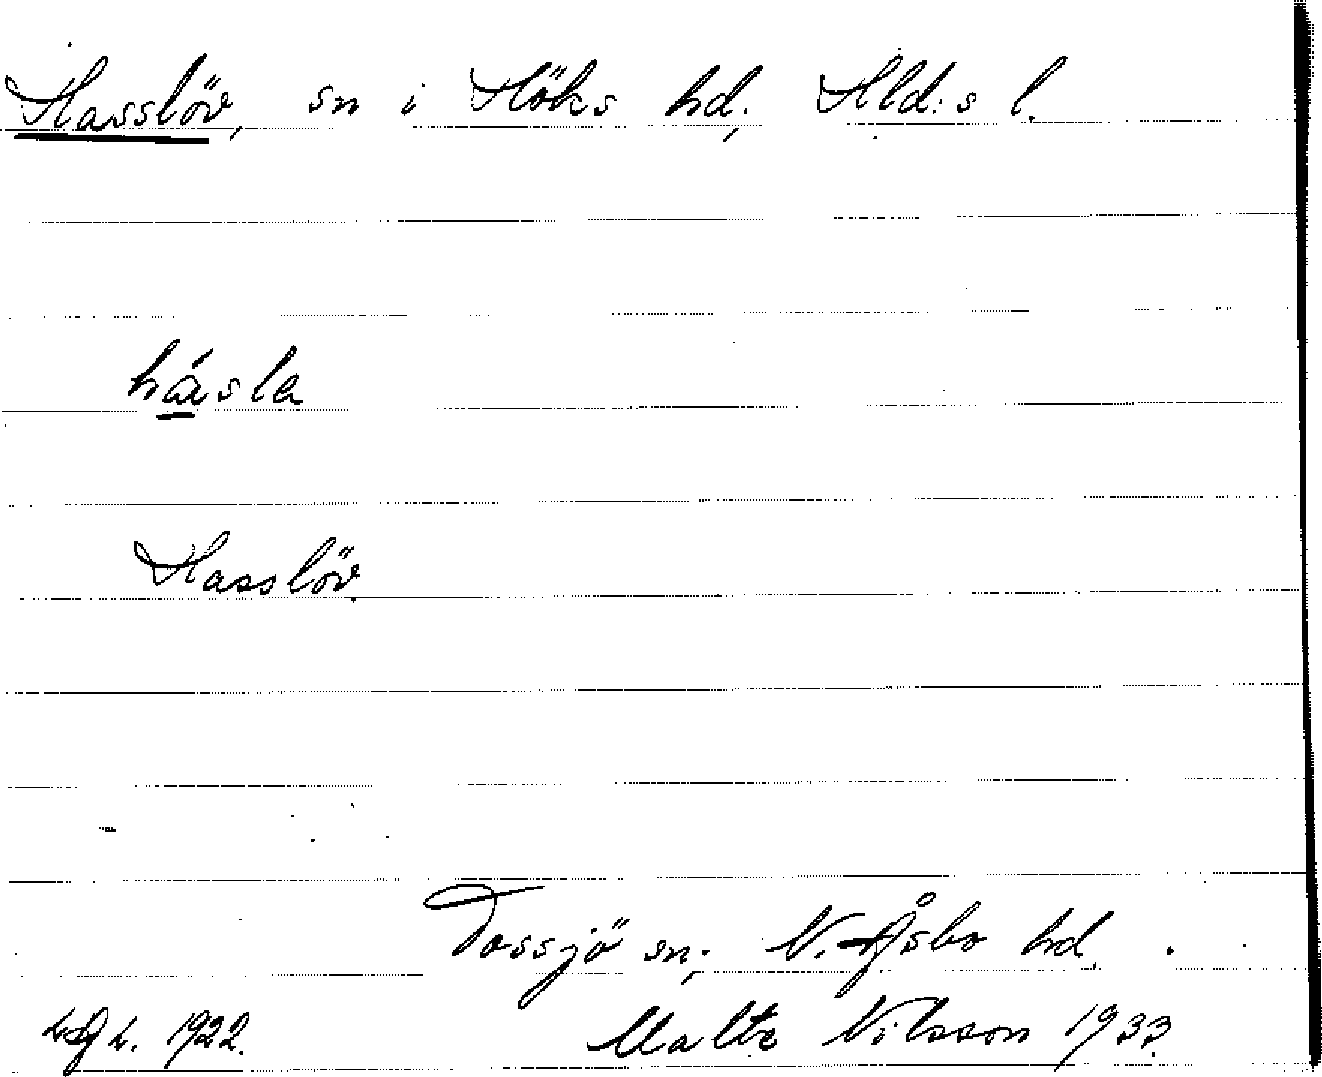 Hasslöv, sn i Höks hd; Hld:s l.
hásla
Hasslöv
Tossjö sn; N. Åsbo hd.
1922. Malte Nilsson 1933